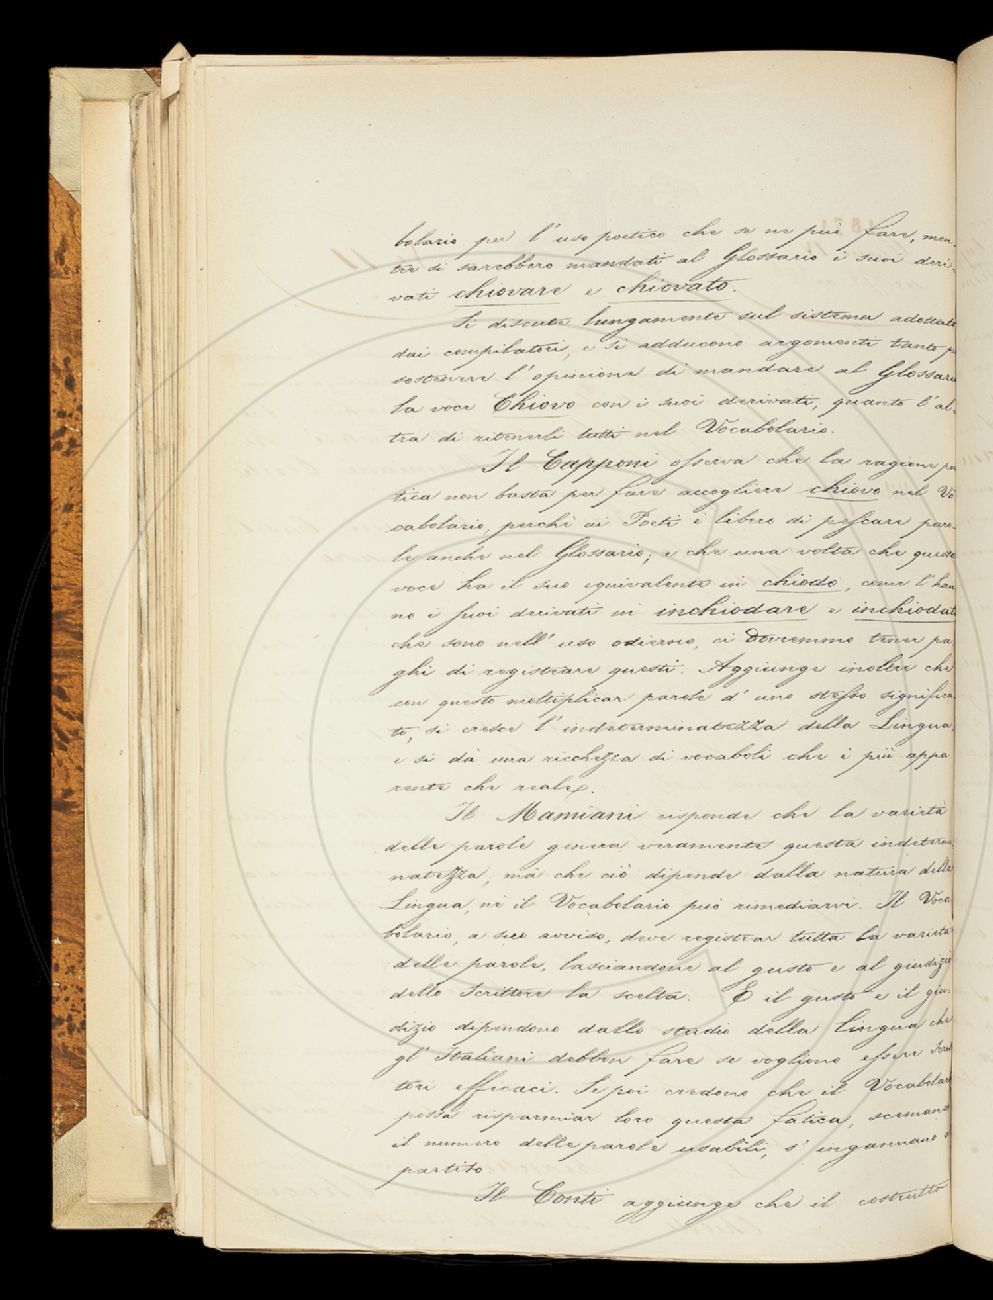 bolario per l'uso poetico che se ne può fare, men-
tre si sarebbero mandati al Glossario i suoi deri-
vati chiovare e chiovato.
Si discute lungamente sul sistema adottato
dai compilatori, e si adducono argomenti tanto p
sostenere l'opinione di mandare al Glossario
la voce Chiovo con i suoi derivati, quanto l'al-
tra di ritenerli tutti nel Vocabolario.
Il Capponi osserva che la ragione poe
tica non basta per fare accogliere chiovo nel Vo
cabolario, perchè ai Poeti è libero di pescare paro-
le anche nel Glossario; e che una volta che questa
voce ha il suo equivalente in chiodo, come l'han
no i suoi derivati in inchiodare e inchiodato
che sono nell'uso odierno, ci dovremmo tener pa
ghi di registrare questi. Aggiunge inoltre che
con questo moltiplicar parole d'uno stesso significa
to, si cresce l'indeterminatezza della Lingua,
e si dà una ricchezza di vocaboli che è più appa
rente che reale.
Il Mamiani risponde che la varietà
delle parole genera veramente questa indetermi
natezza, mà che ciò dipende dalla natura della
Lingua, nè il Vocabolario può rimediarvi. Il Voca
bolario, a suo avviso, deve registrar tutta la varietà
delle parole, lasciandone al gusto e al giudizio
dello Scrittore la scelta. E il gusto e il giu-
dizio dipendono dallo studio della Lingua che
gl'Italiani debbon fare se vogliono essere Scrit
tori efficaci. Se poi credono che il Vocabolario
possa risparmiar loro questa fatica, scemando
il numero delle parole usabili, s'ingannano a
partito
Il Conti aggiunge che il costrutto